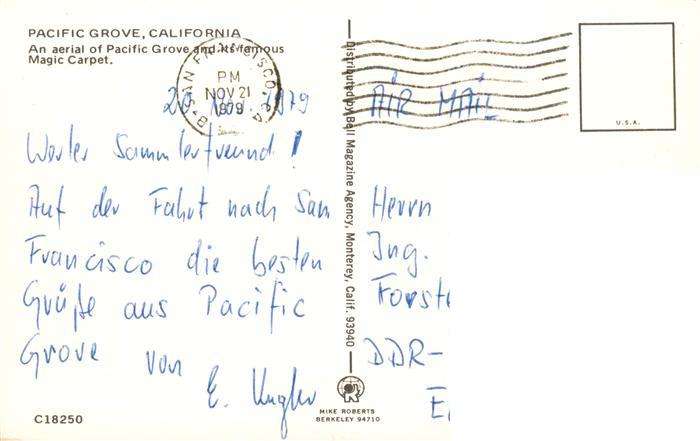 PACIFIC GROVE, CALIFORNIA
An aerial of Pacific Grove and its famous
Magic Carpet.
SAN FRANCISCO, CA
PM
NOV 21
1979
B
1979
Werter Sammlerfreund!
Auf der Fahrt nach San
Francisco die besten
Grüße aus Pacific
Grove von
E.
C18250
Distributed by Bell Magazine Agency, Monterey, Calif. 93940
MIKE ROBERTS
BERKELEY 94710
AIR MAIL
U.S.A.
Herrn
Ing.
DDR-